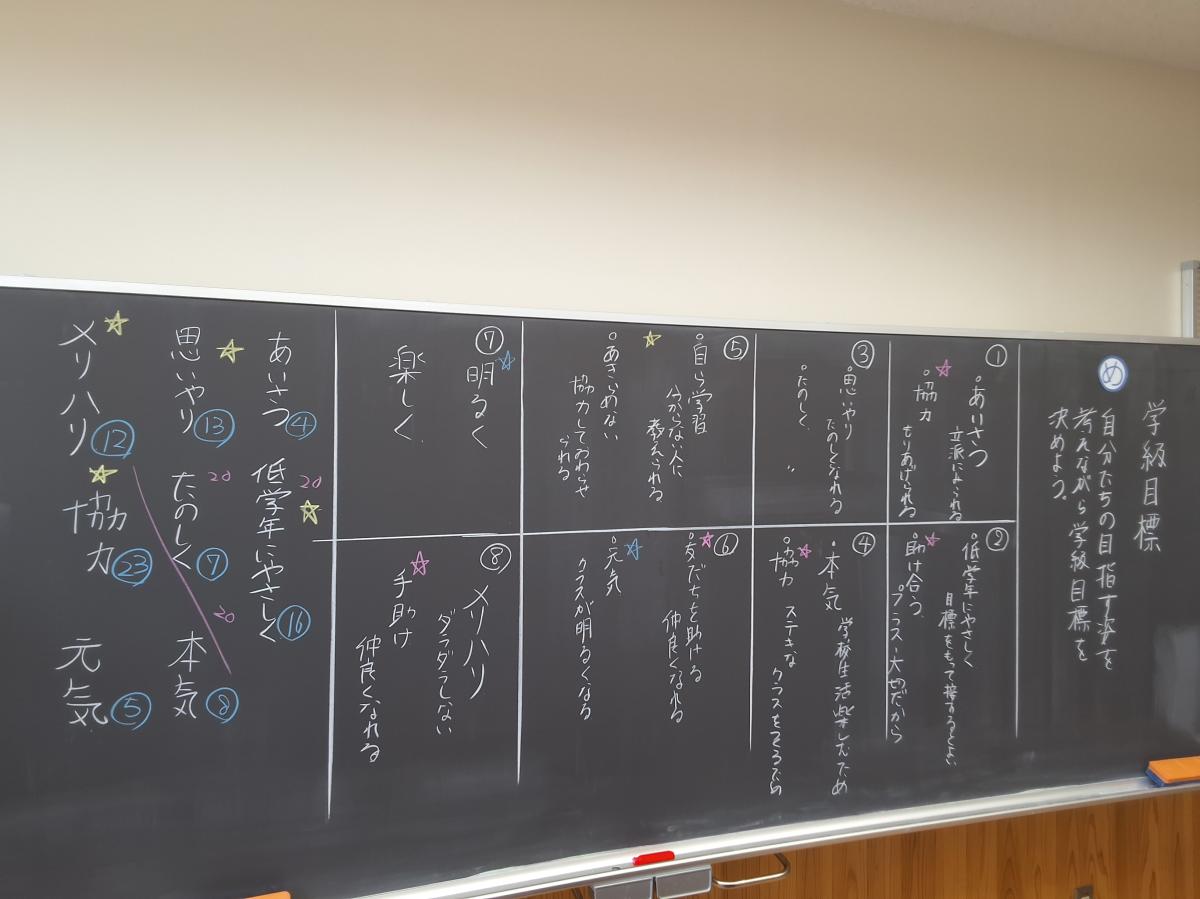 学級目標
め
自分たちの目指す姿を
考えながら学級目標を
決めよう。
①
あいさつ
立派になられる
協力
もりあげられる
②
低学年にやさしく
目標をもって接するとよい
助け合う
プラス、大切だから
③
思いやり
たのしくなれる
たのしく
〃
④
本気
学校生活楽しむため
協力 ステキな
クラスをつくるため
⑤
自ら学習
分からない人に
教えられる
あきらめない
協力しておわらせ
られる
⑥
友だちを助ける
仲良くなれる
元気
クラスが明るくなる
⑦
明るく
楽しく
⑧
メリハリ
ダラダラしない
手助け
仲良くなれる
あいさつ④
低学年にやさしく⑯
20
思いやり⑬
たのしく⑦
20
本気⑧
20
メリハリ⑫
協力㉓
元気⑤